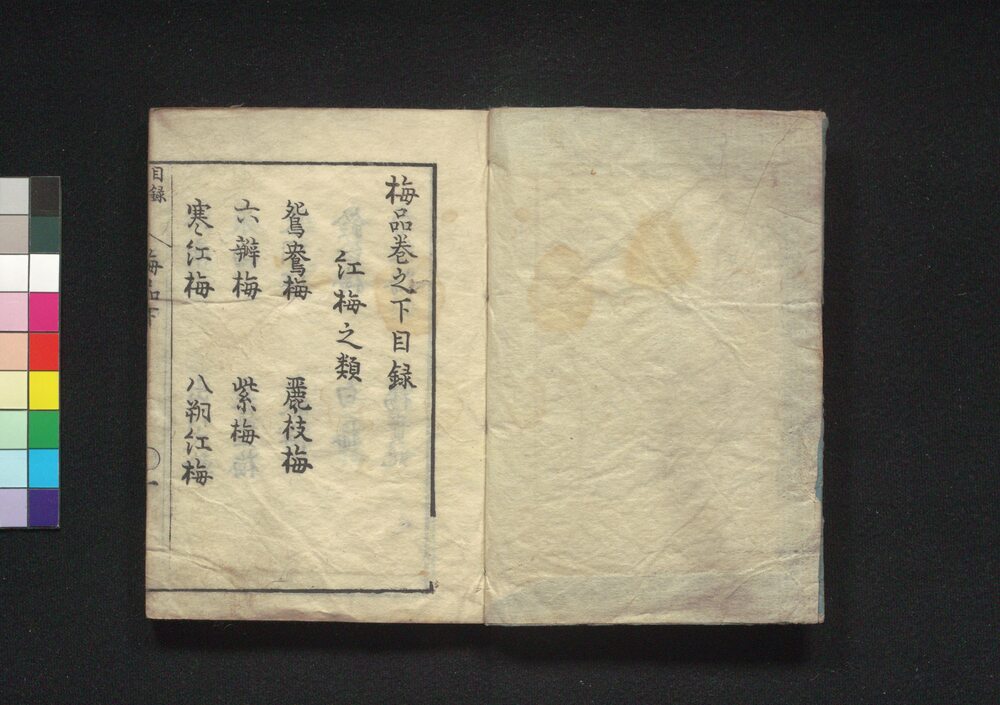 梅品巻之下目録
江梅之類
鴛鴦梅
麗枝梅
六瓣梅
紫梅
寒江梅
八朔紅梅
目録
梅品下
一